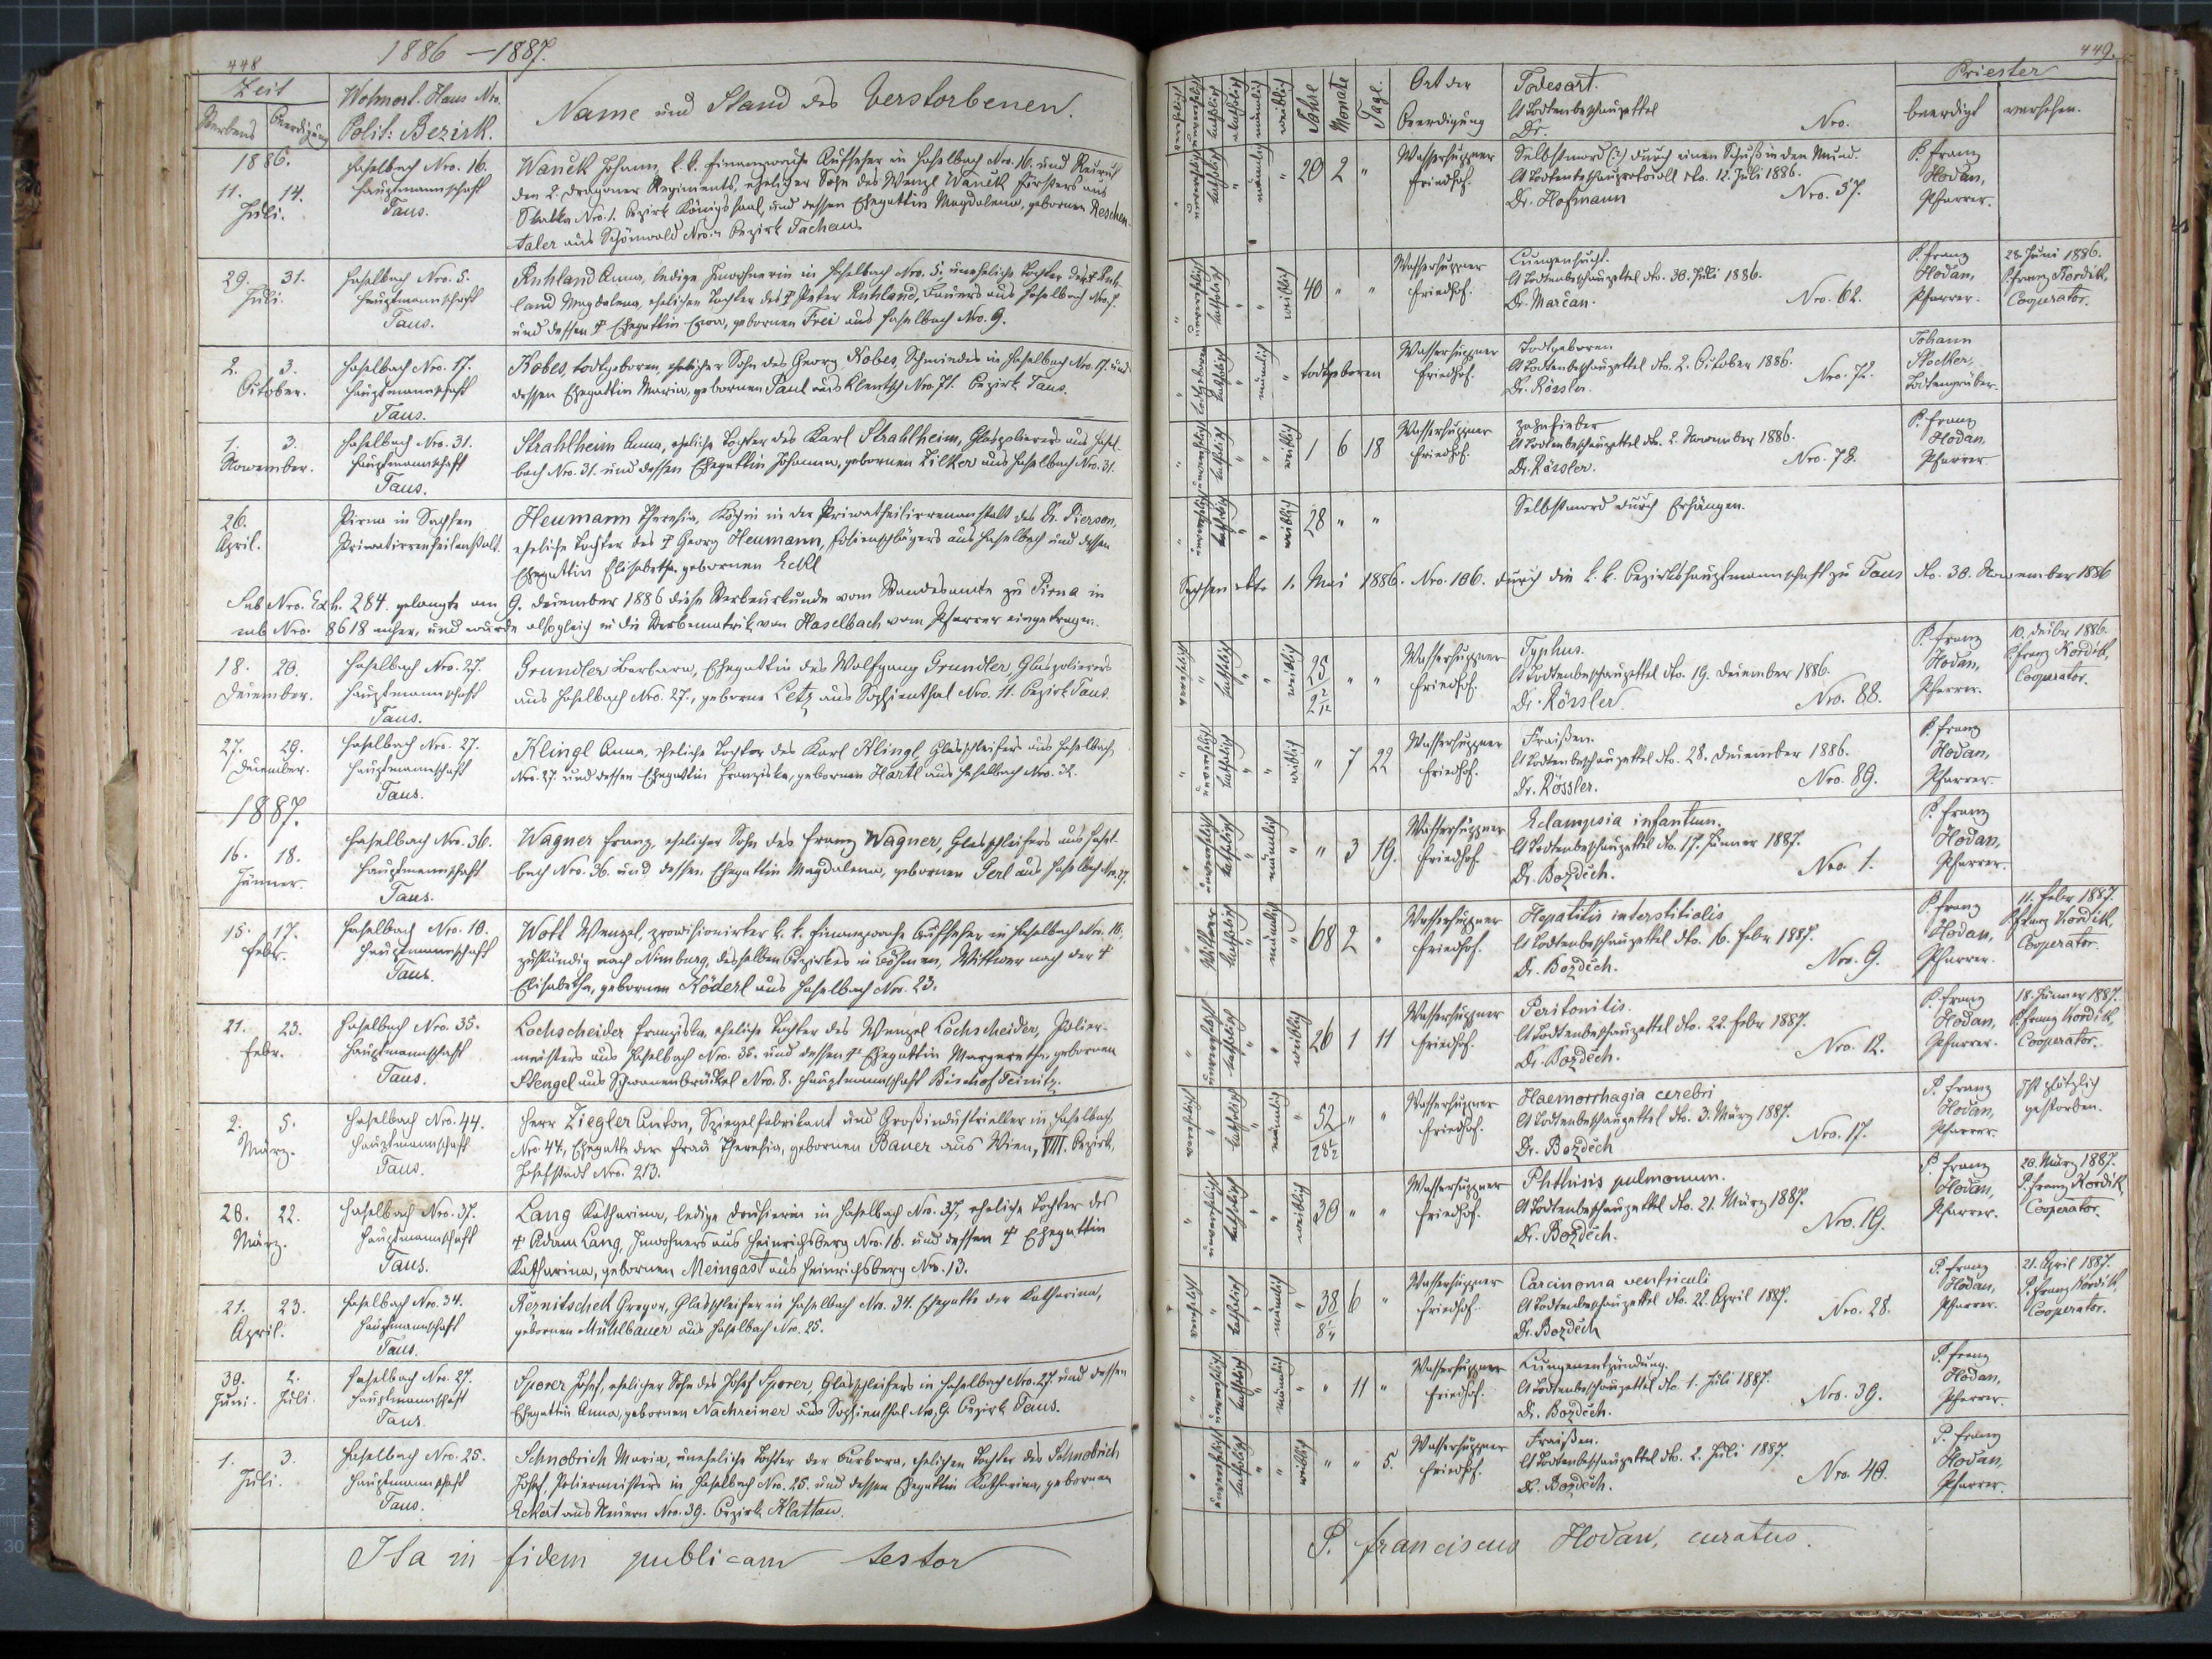 448
1886 – 1887.
Zeit
Sterbens Beerdigung
Wohnort. Haus Nro.
Polit: Bezirk.
Name und Stand des Verstorbenen.
1886.
11. 14.
Juli.
Haselbach Nro. 16.
Hauptmannschaft
Taus.
Wanek Johann, k. k. Finanzwache Aufseher in Haselbach Nro. 16. und
den 2. Dragoner Regiments, ehelicher Sohn des Wenzl Wanek Försters aus
Skalka Nro. 1. Bezirk Königssaal, und dessen Ehegattin Magdalena, gebornen Reschen-
taler aus Schönwald Nro. " Bezirk Tachau.
29. 31.
Juli.
Haselbach Nro. 5.
Hauptmannschaft
Taus.
Ruhland Anna, ledige Inwohnerin in Haselbach Nro. 5. uneheliche Tochter der † Ruh-
land Magdalena, ehelichen Tochter des † Peter Ruhland, Bauers aus Haselbach Nro. 7.
und dessen † Ehegattin Eva, gebornen Frei aus Haselbach Nro. 9.
2. 3.
October.
Haselbach Nro. 17.
Hauptmannschaft
Taus.
Kobes, todtgeboren, ehelicher Sohn des Georg Kobes, Schmiedes in Haselbach Nro. 17. und
dessen Ehegattin Maria, gebornen Paul aus Klentsch Nro. 71. Bezirk Taus.
1. 3.
November.
Haselbach Nro. 31.
Hauptmannschaft
Taus.
Strahlheim Anna, eheliche Tochter des Karl Strahlheim, Glaspolierers aus Hasel-
bach Nro. 31. und dessen Ehegattin Johanna, gebornen Zilker aus Haselbach Nro. 31.
26.
April.
Pirna in Sachsen
Privatirrenheilanstalt.
Heumann Theresia, Köchin in der Privatheilirrenanstalt des Dr. Pierson,
eheliche Tochter des † Georg Heumann, Folienschlägers aus Haselbach und dessen
Ehegattin Elisabeth gebornen Eckl
Sub Nro. Exh. 284. gelangte am 9. December 1886 diese Sterbeurkunde vom Standesamte zu Pirna in
sub Nro. 8618 anher, und wurde alsogleich in die Sterbematrik von Haselbach vom Pfarrer eingetragen.
18. 20.
December.
Haselbach Nro. 27.
Hauptmannschaft
Taus.
Grundler Barbara, Ehegattin des Wolfgang Grundler, Glaspolierers
aus Haselbach Nro. 27., geborne Letz aus Sophienthal Nro. 11. Bezirk Taus.
27. 29.
December.
Haselbach Nro. 27.
Hauptmannschaft
Taus.
Klingl Anna, eheliche Tochter des Karl Klingl, Glasschleifers aus Haselbach,
Nro. 27. und dessen Ehegattin Franziska, gebornen Hartl aus Haselbach Nro. 32.
1887.
16. 18.
Jänner.
Haselbach Nro. 36.
Hauptmannschaft
Taus.
Wagner Franz, ehelicher Sohn des Franz Wagner, Glasschleifers aus Hasel-
bach Nro. 36. und dessen Ehegattin Magdalena, gebornen Gerl aus Haselbach Nro. 27.
15. 17.
Febr.
Haselbach Nro. 10.
Hauptmannschaft
Taus.
Wotl Wenzel, provisionirter k. k. Finanzwache Aufseher in Haselbach Nro. 10.
zuständig nach Nimburg, desselben Bezirkes in Böhmen, Wittwer nach der †
Elisabetha, gebornen Köderl aus Haselbach Nro. 23.
21. 23.
Febr.
Haselbach Nro. 35.
Hauptmannschaft
Taus.
Lochscheider Franziska, eheliche Tochter des Wenzel Lochscheider, Polier-
meisters aus Haselbach Nro. 35. und dessen † Ehegattin Margareth, gebornen
Stengel aus Schwanenbrückel Nro. 8. Hauptmannschaft Bischof Teinitz.
2. 5.
März.
Haselbach Nro. 44.
Hauptmannschaft
Taus.
Herr Ziegler Anton, Spiegelfabrikant und Großindustrieller in Haselbach,
Nro. 44, Ehegatte der Frau Theresia, gebornen Bauer aus Wien, VIII. Bezirk,
Josefstadt Nro. 213.
20. 22.
März.
Haselbach Nro. 37.
Hauptmannschaft
Taus.
Lang Katharina, ledige in Haselbach Nro. 37, eheliche Tochter des
† Adam Lang, Inwohners aus Heinrichsberg Nro. 16. und dessen † Ehegattin
Katharina, gebornen Meingast aus Heinrichsberg Nro. 13.
21. 23.
April.
Haselbach Nro. 34.
Hauptmannschaft
Taus.
Rêznitschek Gregor, Glasschleifer in Haselbach Nro. 34. Ehegatte der Katharina,
gebornen Mühlbauer aus Haselbach Nro. 25.
30. 2.
Juni. Juli.
Haselbach Nro. 27.
Hauptmannschaft
Taus.
Sporer Josef, ehelicher Sohn des Josef Sporer, Glasschleifers in Haselbach Nro. 27 und dessen
Ehegattin Anna, gebornen Nachreiner aus Sophienthal Nro. 9. Bezirk Taus.
1. 3.
Juli.
Haselbach Nro. 25.
Hauptmannschaft
Taus.
Schnobrich Maria, uneheliche Tochter der Barbara, ehelichen Tochter des Schnobrich
Josef, Poliermeisters in Haselbach Nro. 25. und dessen Ehegattin Katharina, gebornen
Eckert aus Neuern Nro. 39. Bezirk Klattau.
Ita in fidem publicam testor
449.
katholisch
akatholisch
männlich
weiblich
Jahre
Monate
Tage.
Ort der
Beerdigung
Todesart.
lt Todtenbeschauzettel
Dr. Nro.
Priester
beerdigt
versehen.
katholisch männlich " 20 2 "
Wassersuppner
Friedhof.
Selbstmord (?) durch einen Schuß in den Mund.
lt Todtenbeschauprotocoll dto. 12. Juli 1886.
Dr. Hofmann Nro. 57.
P. Franz
Hodan,
Pfarrer.
katholisch " weiblich 40 " "
Wassersuppner
Friedhof.
Lungensucht.
lt Todtenbeschauzettel dto. 30. Juli 1886.
Dr. Marčan. Nro. 62.
P. Franz
Hodan,
Pfarrer.
28. Juni 1886.
P. Franz Kordik,
Cooperator.
katholisch männlich " todtgeboren
Wassersuppner
Friedhof.
Todtgeboren
lt Todtenbeschauzettel dto. 2. October 1886.
Dr. Rössler. Nro. 72.
Johann
Stocker,
Todtengräber.
katholisch " weiblich 1 6 18
Wassersuppner
Friedhof.
Zahnfieber
lt Todtenbeschauzettel dto. 2. November 1886.
Dr. Rössler. Nro. 78.
P. Franz
Hodan,
Pfarrer
katholisch " weiblich 28 " "
Selbstmord durch Erhängen.
Sachsen dto 1. Mai 1886. Nro. 106. durch die k. k. Bezirkshauptmannschaft zu Taus dto. 30. November 1886
katholisch " weiblich 25 " "
2 2/12
Wassersuppner
Friedhof.
Typhus.
lt Todtenbeschauzettel dto. 19. December 1886.
Dr. Rössler. Nro. 88.
P. Franz
Hodan,
Pfarrer.
10. Decbr 1886.
P. Franz Kordik,
Cooperator.
katholisch " weiblich " 7 22
Wassersuppner
Friedhof.
Fraißen.
lt Todtenbeschauzettel dto. 28. December 1886.
Dr. Rössler. Nro. 89.
P. Franz
Hodan,
Pfarrer.
katholisch männlich " " 3 19.
Wassersuppner
Friedhof.
Eclampsia infantum.
lt Todtenbeschauzettel dto. 17. Jänner 1887.
Dr. Bozděch. Nro. 1.
P. Franz
Hodan,
Pfarrer.
Wittwer katholisch männlich " 68 2 "
Wassersuppner
Friedhof.
Hepatitis interstitialis
lt Todtenbeschauzettel dto. 16. Febr 1887.
Dr. Bozděch. Nro. 9.
P. Franz
Hodan,
Pfarrer.
11. Febr 1887.
P. Franz Kordik,
Cooperator.
katholisch " weiblich 26 1 11
Wassersuppner
Friedhof.
Peritonitis.
lt Todtenbeschauzettel dto. 22. Febr 1887.
Dr. Bozděch. Nro. 12.
P. Franz
Hodan,
Pfarrer.
18. Jänner 1887.
P. Franz Kordik,
Cooperator.
katholisch männlich " 52 " "
28 1/2
Wassersuppner
Friedhof.
Haemorrhagia cerebri
lt Todtenbeschauzettel dto. 3. März 1887.
Dr. Bozděch Nro. 17.
P. Franz
Hodan,
Pfarrer.
Ist plötzlich
gestorben.
katholisch " weiblich 30 " "
Wassersuppner
Friedhof.
Phthisis pulmonum.
lt Todtenbeschauzettel dto. 21. März 1887.
Dr. Bozděch. Nro. 19.
P. Franz
Hodan,
Pfarrer.
20. März 1887.
P. Franz Kordik,
Cooperator.
katholisch männlich " 38 6 "
Wassersuppner
Friedhof.
Carcinoma ventriculi
lt Todtenbeschauzettel dto. 22. April 1887.
Dr. Bozděch Nro. 28.
P. Franz
Hodan,
Pfarrer.
21. April 1887.
P. Franz Kordik,
Cooperator.
katholisch männlich " " 11 "
Wassersuppner
Friedhof.
Lungenentzündung.
lt Todtenbeschauzettel dto. 1. Juli 1887.
Dr. Bozděch. Nro. 39.
P. Franz
Hodan,
Pfarrer.
katholisch " weiblich " " 5.
Wassersuppner
Friedhof.
Fraißen.
lt Todtenbeschauzettel dto. 2. Juli 1887.
Dr. Bozděch. Nro. 40.
P. Franz
Hodan,
Pfarrer.
P. Franciscus Hodan, curatus.